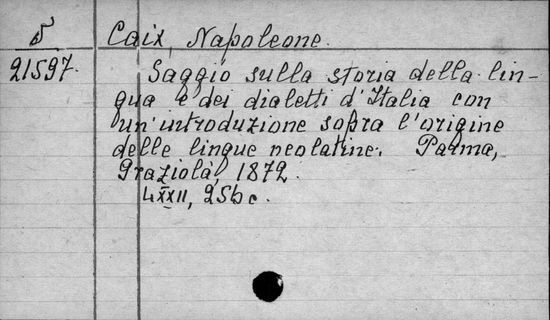 5 Caix, Napoleone.
21597. Saggio sulla storia della lin-
gua e dei dialetti d'Italia con
un'introduzione sopra l'origine
delle lingue neolatine. Parma,
Graziola, 1872.
LXXII, 25 b c.